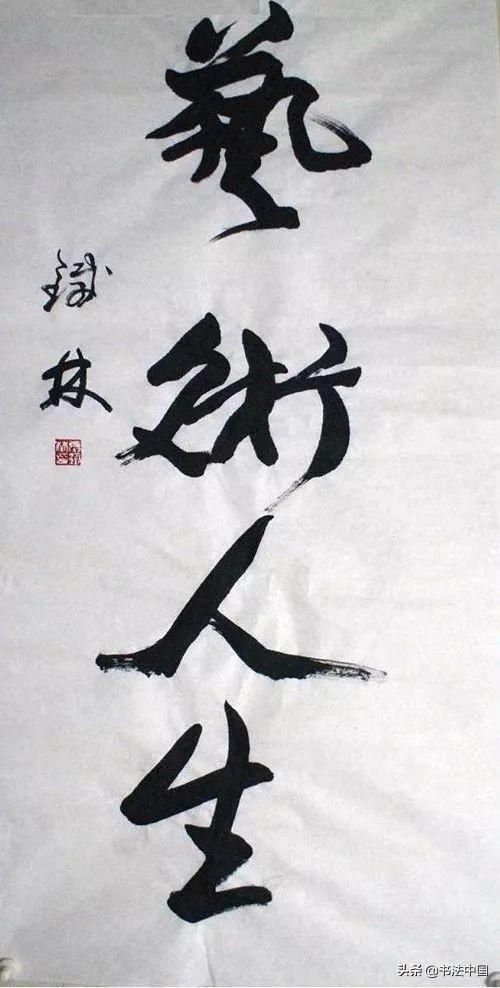 藝術人生
鐵林
头条 @书法中国